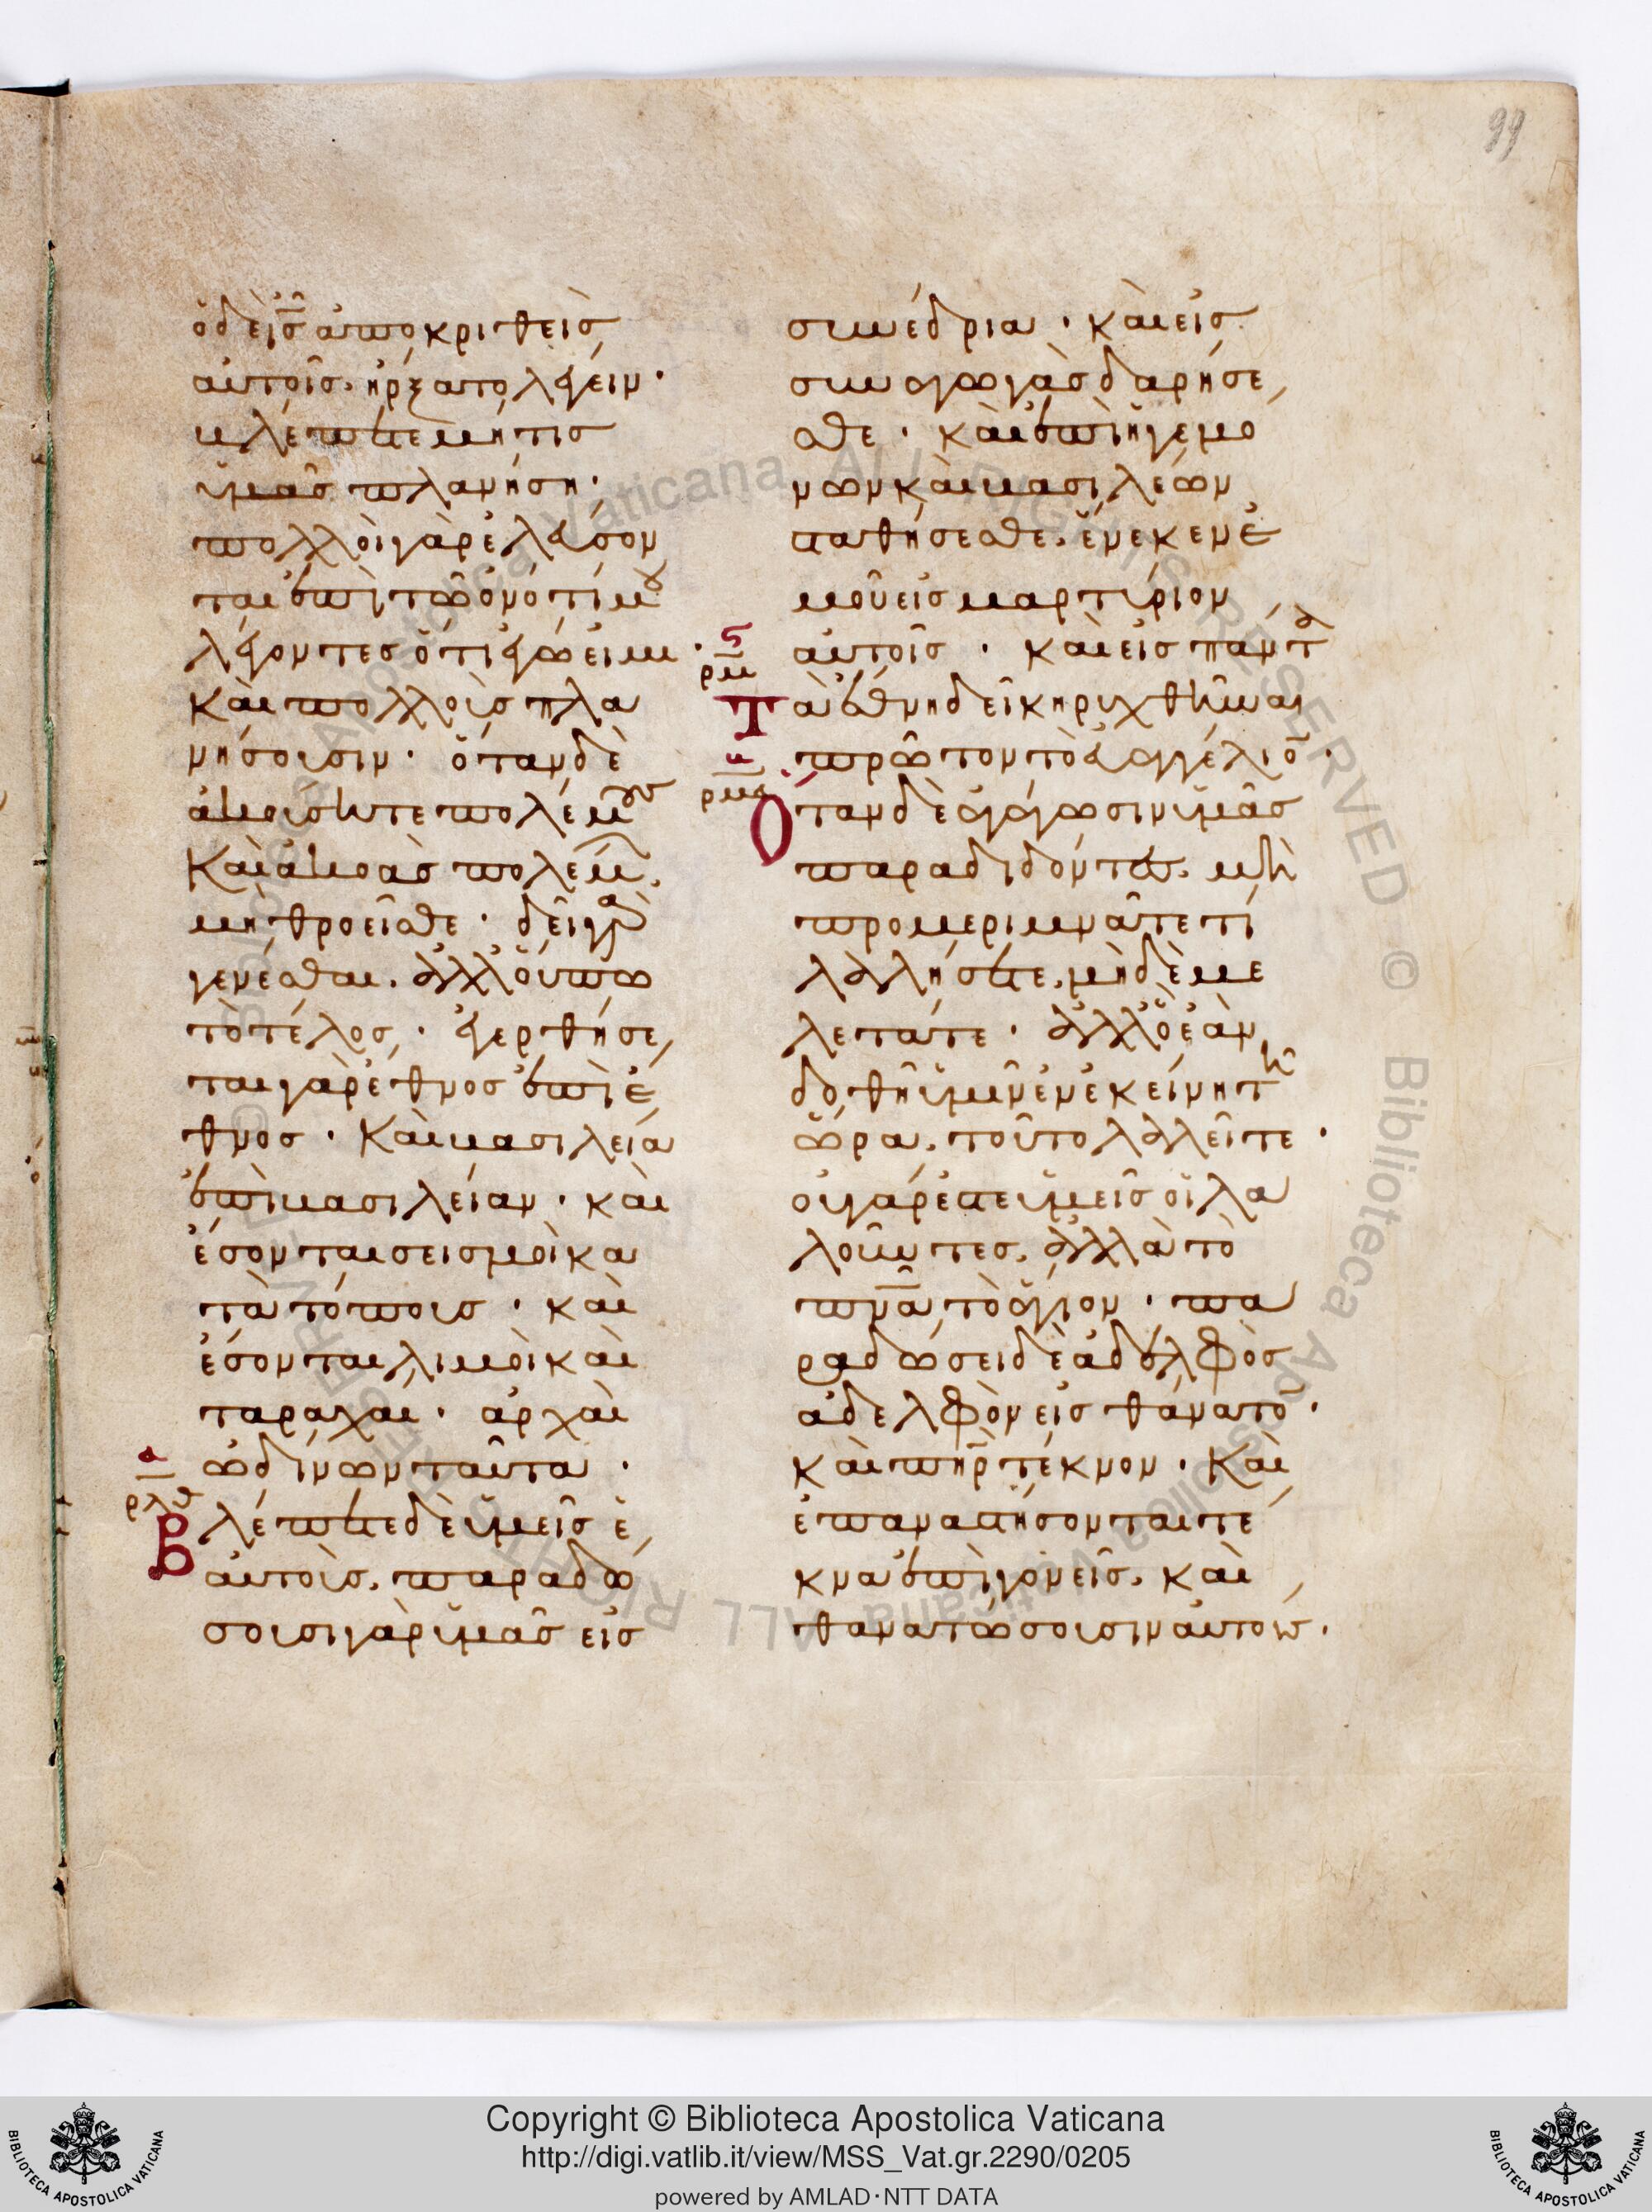 99
ὁ δὲ ις ἀποκριθεὶς
αὐτοῖς. ἤρξατο λέγειν·
βλέπετε μή τις
ὑμᾶς πλανήση·
πολλοὶ γὰρ ἐλεύσον
ται ἐπὶ τῶ ὀνόματί μου
λέγοντες ὅτι ἐγώ εἰμι·
καὶ πολλοὺς πλα
νήσουσιν· ὅταν δὲ
ἀκούσητε πολέμους
καὶ ἀκοὰς πολέμων.
μὴ θροεῖσθε· δεῖ γὰρ
γενέσθαι. ἀλλ' οὔπω
τὸ τέλος· ἐγερθήσε
ται γὰρ ἔθνος ἐπὶ ἔ
θνος· καὶ βασιλεία
ἐπὶ βασιλείαν· καὶ
ἔσονται σεισμοὶ κα
τὰ τόπους· καὶ
ἔσονται λιμοὶ καὶ
ταραχαί· ἀρχαὶ
ὠδίνων ταῦτα·
α
ρλθ
Βλέπετε δὲ ὑμεῖς ἑ
αυτούς. παραδώ
σουσι γὰρ ὑμᾶς εἰς
συνέδρια· καὶ εἰς
συναγωγὰς δαρήσε
σθε· καὶ ἐπὶ ἡγεμό
νων καὶ βασιλέων
σταθήσεσθε. ἕνεκεν ἐ
μοῦ εἰς μαρτύριον
αὐτοῖς· καὶ εἰς πάντα
ϛ
ρμ
Τὰ ἔθνη δεῖ κηρυχθῆναι
πρῶτον τὸ εὐαγγέλιον·
β
ρμα
Ὅταν δὲ ἀγάγωσιν ὑμᾶς
παραδιδόντες. μὴ
προμεριμνᾶτε τί
λαλήσητε. μηδὲ με
λετᾶτε· ἀλλ' ὃ ἐὰν
δοθῆ ὑμῖν ἐν ἐκείνη τῆ
ὥρα. τοῦτο λαλεῖτε·
οὐ γάρ ἐστε ὑμεῖς οἱ λα
λοῦντες. ἀλλὰ τὸ
πνα τὸ ἅγιον· πα
ραδώσει δὲ ἀδελφὸς
ἀδελφὸν εἰς θάνατον·
καὶ πηρ τέκνον· καὶ
ἐπαναστήσονται τέ
κνα ἐπὶ γονεῖς. καὶ
θανατώσουσιν αὐτούς.
Copyright © Biblioteca Apostolica Vaticana
http://digi.vatlib.it/view/MSS_Vat.gr.2290/0205
powered by AMLAD·NTT DATA